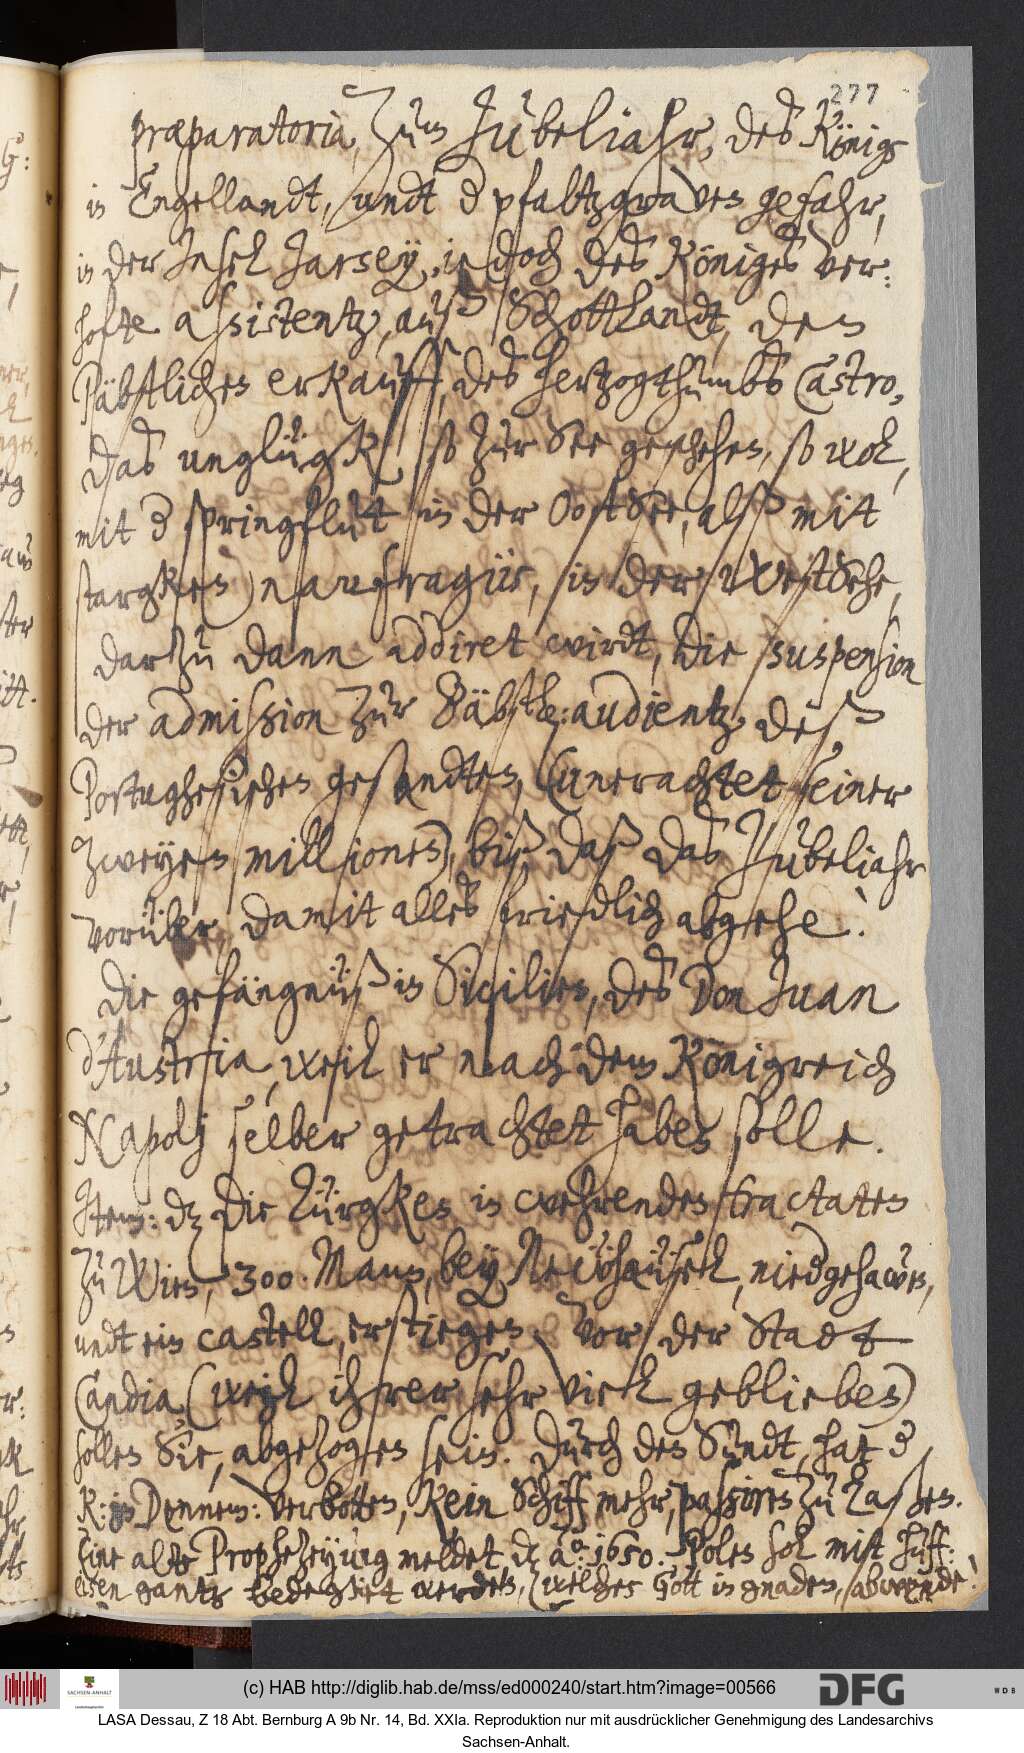 277
præparatoria, zum Jubeljahr, des Königs
in Engellandt, undt d pfaltzgraven gefahr,
in der Insel Jarsey, iedoch des Königes ver:
hofte assistentz, auß Schottlandt, den
Päbstlichen erkauff, des hertzogthumbs Castro,
das unglügk so zur See geschehen, so wol,
mit d springflut in der OostSee, alß mit
stargken naufragiis, in der WestSehe,
darzu dann addiret wirdt, die suspension
der admission zur Päbstl: audientz, deß
Portughesischen gesandten, (unerachtet seiner
zweyen millionen), biß daß das Jubeljahr
vorüber, damit alles friedlich abgehe.
Die gefängnüß in Sicilien, des Don Juan
d'Austria, weil er nach dem Königreich
Napolj selber getrachtet haben solle.
Item: dz die Türgken in wehrenden tractaten
zu Wien, 300. Mann, bey Newhäusel, niedgehawen,
undt ein castell, erstiegen. Vor der Stadt
Candia (weil ihrer sehr viel geblieben)
sollen Sie, abgezogen sein. Durch den Sundt, hat d
K: in Dennem: verbotten, kein Schiff mehr, passiren zu laßen.
Eine alte Prophezeyung meldet, dz ao: 1650. Polen sol mit huff:
eisen gantz bedegket werden, welches Gott in gnaden, abwende!
(c) HAB http://diglib.hab.de/mss/ed000240/start.htm?image=00566
SACHSEN-ANHALT
DFG
WDB
LASA Dessau, Z 18 Abt. Bernburg A 9b Nr. 14, Bd. XXIa. Reproduktion nur mit ausdrücklicher Genehmigung des Landesarchivs
Sachsen-Anhalt.